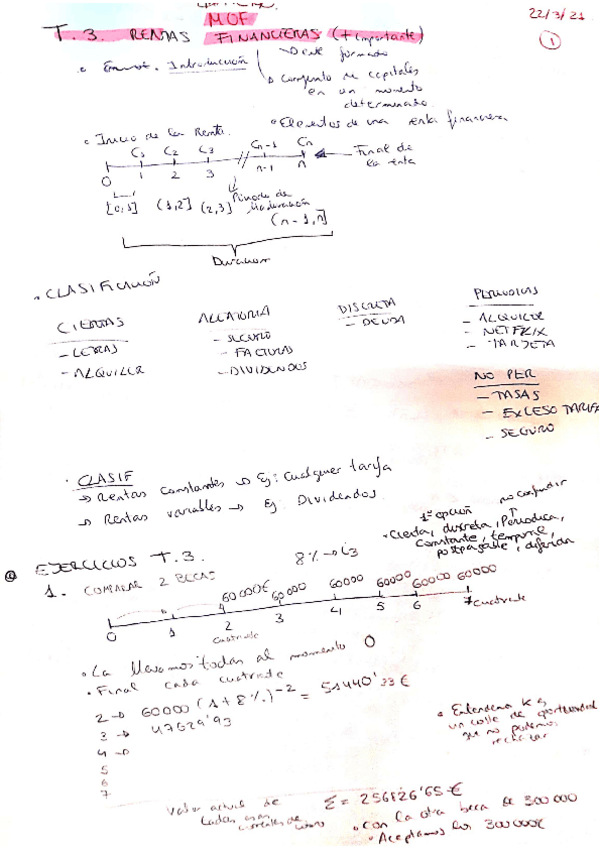 MOF
22/3/21
T.3. RENTAS FINANCIERAS (+ importante)
1
Introducción
formado
Conjunto de capitales
en un momento
determinado.
Elementos de una renta financiera
Inicio de la Renta.
C1 C2 C3 Cn-1 Cn
Final de
la renta
0 1 2 3 n-1 n
[0,1] (1,2] (2,3]
(n-1,n]
Duracion
CLASIFICACIÓN
CIERTAS
- LETRAS
- ALQUILER
ALEATORIA
- SEGURO
- FACTURAS
- DIVIDENDOS
DISCRETA
- DEUDA
PERIODICAS
- ALQUILER
- NETFLIX
- TARJETA
NO PER
- TASAS
- EXCESO TARIFA
- SEGURO
CLASIF
→ Rentas constantes → Ej: Cualquier tarifa
→ Rentas variables → Ej Dividendos.
1ª opción
no confundir
Cierta, discreta, Periodica,
Constante, temporal,
postpagable, diferida
EJERCICIOS T.3.
8% → i3
1. COMPARAR 2 BECAS
60000€ 60000 60000 60000 60000 60000
0 1 2 3 4 5 6 7
cuatrimestre
La llevamos todas al momento 0
Final cada
2 → 60000 (1+8%)^-2 = 51440'33 €
3 → 47629'93
4 →
5
6
7
un coste de oportunidad
que no podemos
rechazar
Valor actual de
todas
Σ = 256826'65 €
con la otra beca de 300000
Aceptamos los 300000€